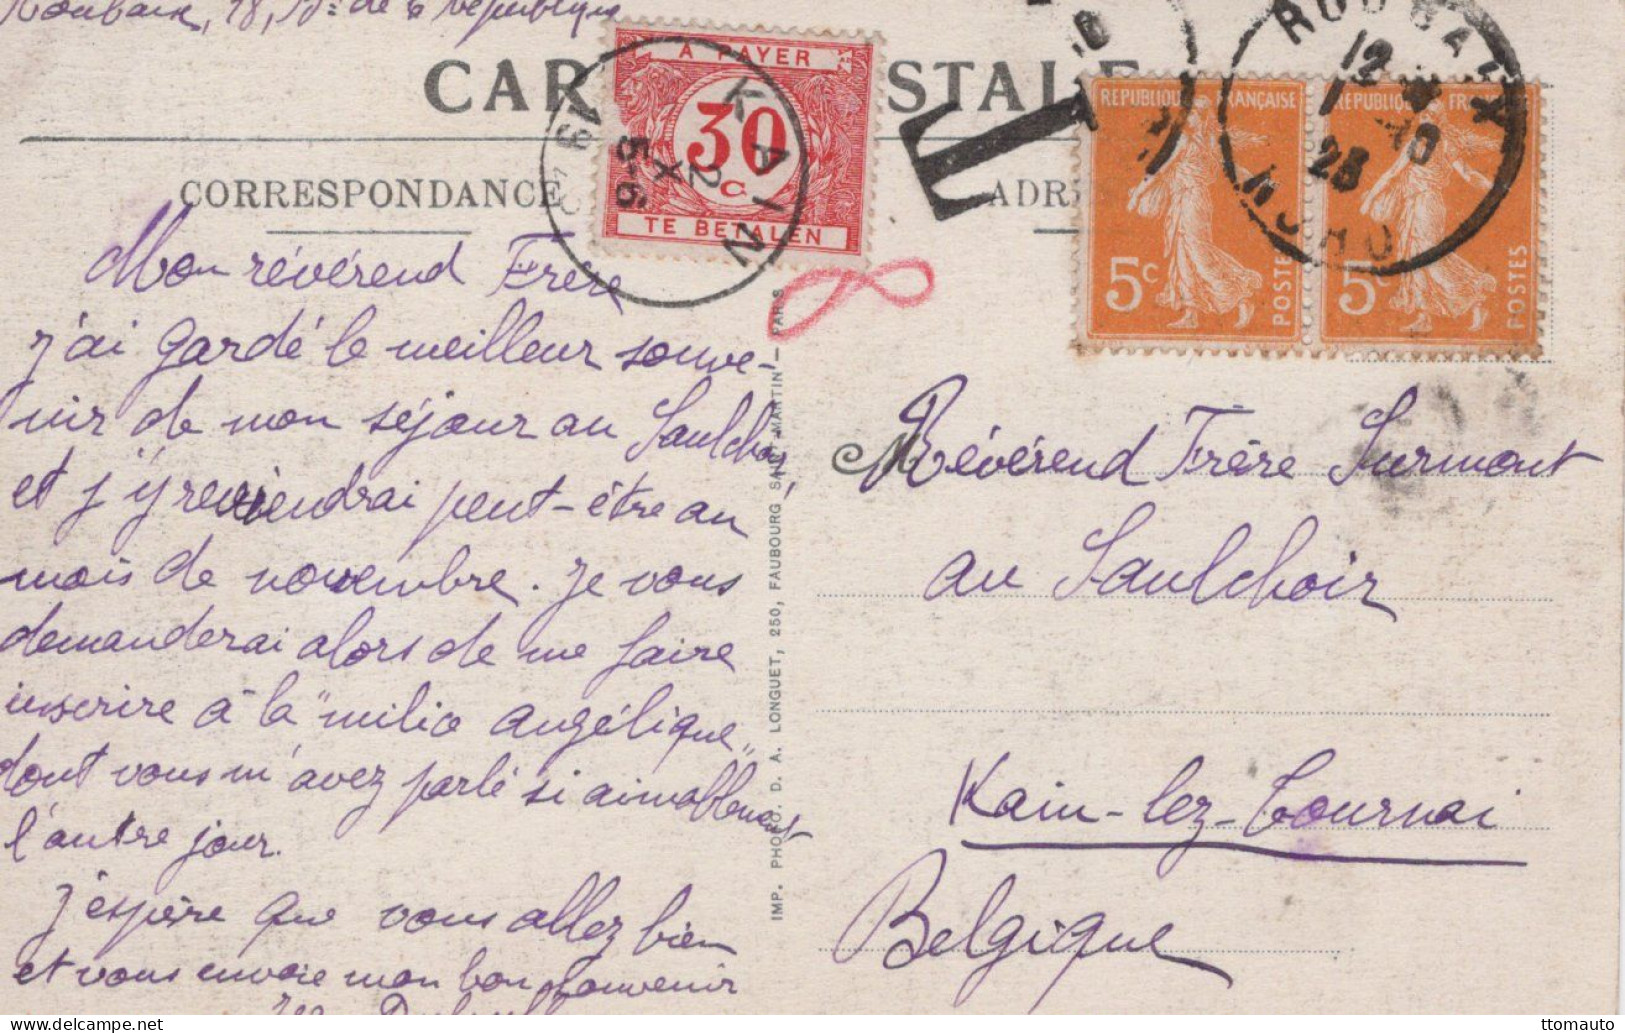 Roubaix, 18, Bd de la République
CARTE POSTALE
A PAYER
30
c
TE BETALEN
KAIN
19
2
X
5-6
T
REPUBLIQUE FRANÇAISE
5c
POSTES
REPUBLIQUE FR
5c
POSTES
ROUBAIX
12
1 10
25
NORD
CORRESPONDANCE
ADR
Mon révérend Frère
j'ai gardé le meilleur souve-
nir de mon séjour au Saulchoir,
et j'y reviendrai peut-être au
mois de novembre. Je vous
demanderai alors de me faire
inscrire à la "milice angélique"
dont vous m'avez parlé si aimablement
l'autre jour.
J'espère que vous allez bien
et vous envoie mon bon souvenir
IMP. PHOTO. D. A. LONGUET, 250, FAUBOURG SAINT-MARTIN — PARIS
Révérend Frère Surmont
au Saulchoir
Kain-lez-Tournai
Belgique
ttomauto